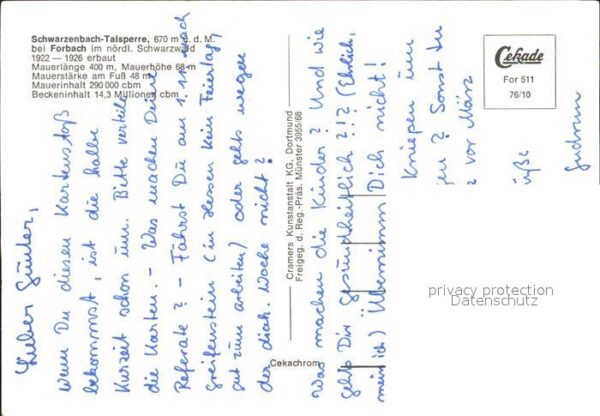 Schwarzenbach-Talsperre, 670 m ü. d. M.
bei Forbach im nördl. Schwarzwald
1922 — 1926 erbaut
Mauerlänge 400 m, Mauerhöhe 68 m
Mauerstärke am Fuß 48 m
Mauerinhalt 290 000 cbm
Beckeninhalt 14,3 Millionen cbm
Cekade
For 511
76/10
Cramers Kunstanstalt KG, Dortmund
Freigeg. d. Reg.-Präs. Münster 3955/68
Cekachrom
Lieber Günter,
wenn Du diesen Kartenstoß
bekommst, ist die halbe
Kurzeit schon um. Bitte verteile
die Karten. - Was machen Deine
Referate? - Fährst Du am 1.11. nach
Greifenstein (in Hessen kein Feiertag,
gut zum arbeiten) oder gehts wegen
der diak. Woche nicht?
Was machen die Kinder? Und wie
gehts Dir gesundheitlich?!? (Ehrlich,
mein ich) Übernimm Dich nicht!
Kniepen um
jen? Sonst Du
vor März
üße
Gudrun
privacy protection
Datenschutz